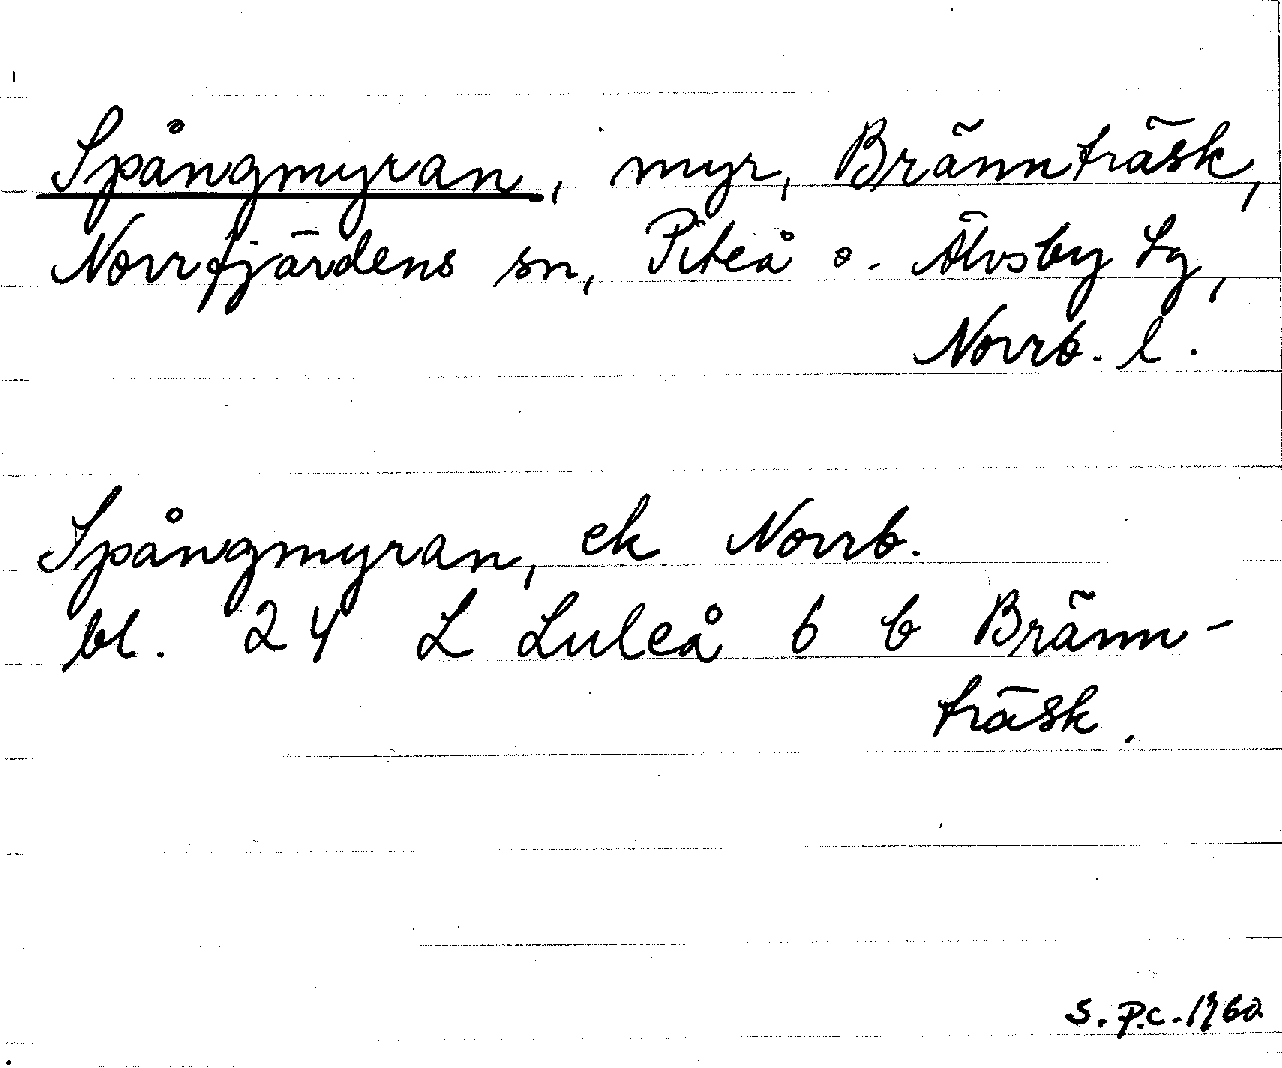 Spångmyran, myr, Brännträsk,
Norrfjärdens sn, Piteå o. Älvsby tg,
Norrb. l.
Spångmyran, ek Norrb.
bl. 24 L Luleå 6 b Bränn-
träsk.
S. P.C. 1960